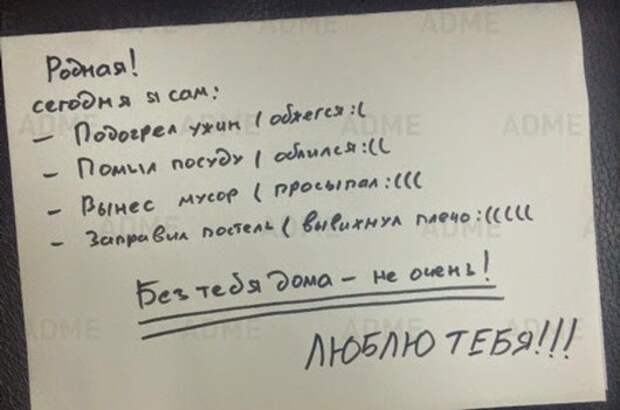 Родная!
сегодня я сам:
- Подогрел ужин ( обжегся :(
- Помыл посуду ( облился :((
- Вынес мусор ( просыпал :(((
- Заправил постель ( вывихнул плечо :(((((
Без тебя дома - не очень!
ЛЮБЛЮ ТЕБЯ!!!
ADME
ADME
ADME
ADME
ADME
ADME
ADME
ADME